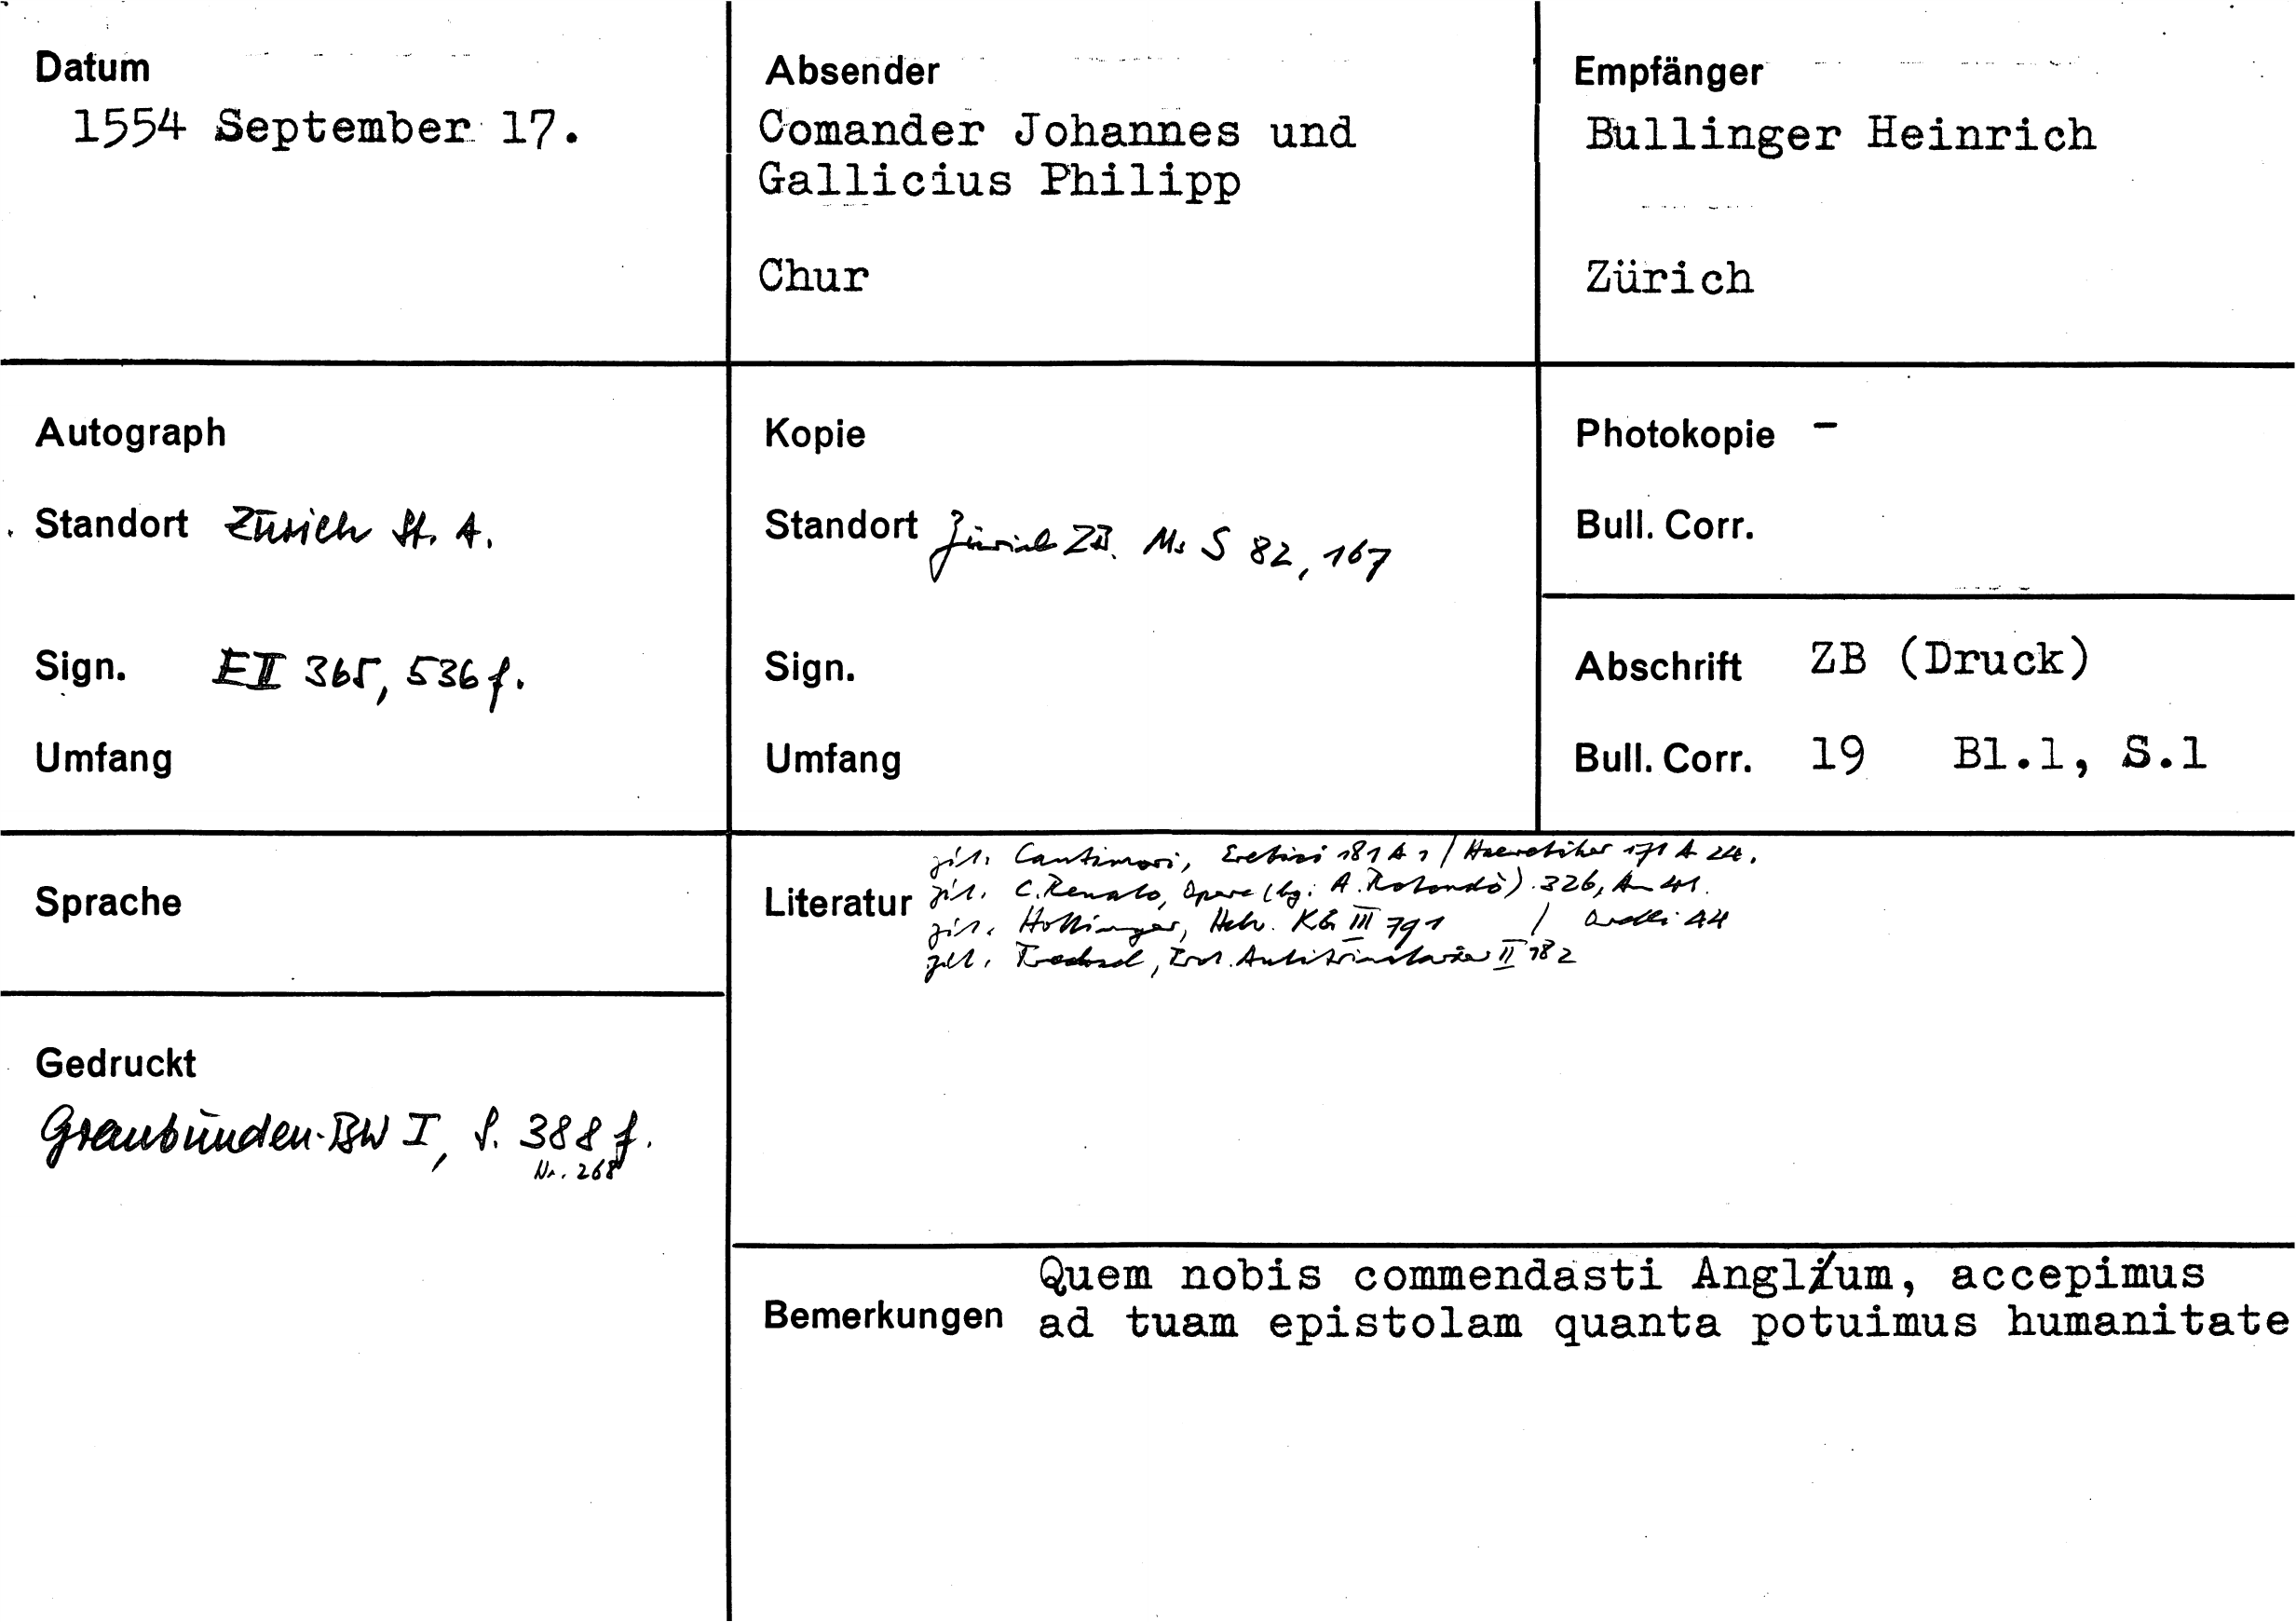 Datum
1554 September 17.
Absender
Comander Johannes und
Gallicius Philipp
Chur
Empfänger
Bullinger Heinrich
Zürich
Autograph
Standort Zürich St. A.
Sign. E II 365, 536 f.
Umfang
Kopie
Standort Zürich ZB. Ms S 82, 167
Sign.
Umfang
Photokopie -
Bull. Corr.
Abschrift ZB (Druck)
Bull. Corr. 19 Bl.1, S.1
Sprache
Gedruckt
Graubünden-BW I, S. 388 f.
Nr. 268
Literatur
zit. Cantimori, Eretici 181 A 1 / Haeretiker 171 A 24.
zit. C. Renato, Opere (hg: A. Rotondò) 326, An 41.
zit. Hottinger, Helv. KG III 791 / 44
zit. Trechsel, Prot. Antitrinitarier II 182
Bemerkungen
Quem nobis commendasti Anglum, accepimus
ad tuam epistolam quanta potuimus humanitate